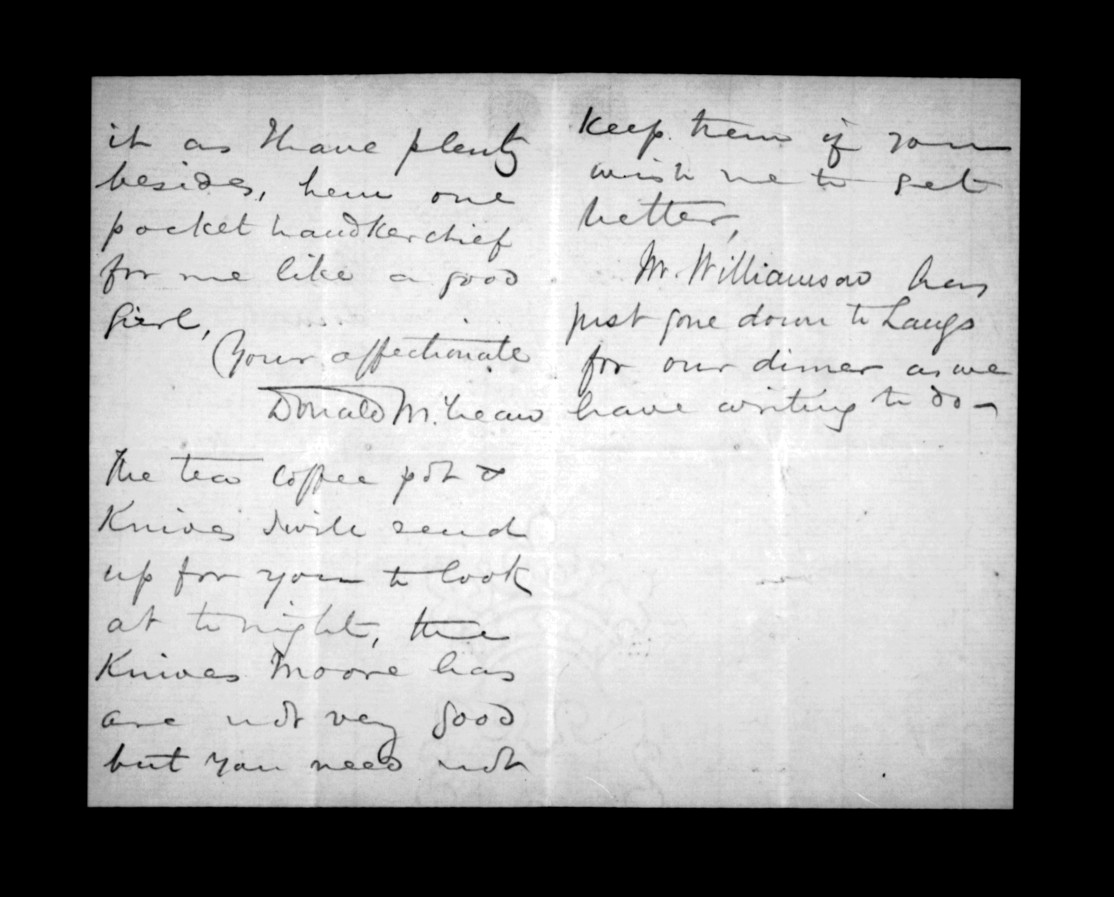 it as I have plenty
besides, hem one
pocket handkerchief
for me like a good
girl,
Your affectionate
Donald McLean
The tea coffee pot &
Knives I will send
up for you to look
at to night, the
Knives Moore has
are not very good
but you need not
keep them if you
wish me to get
better,
Mr. Williamson has
just gone down to Langs
for our dinner as we
have writing to do -